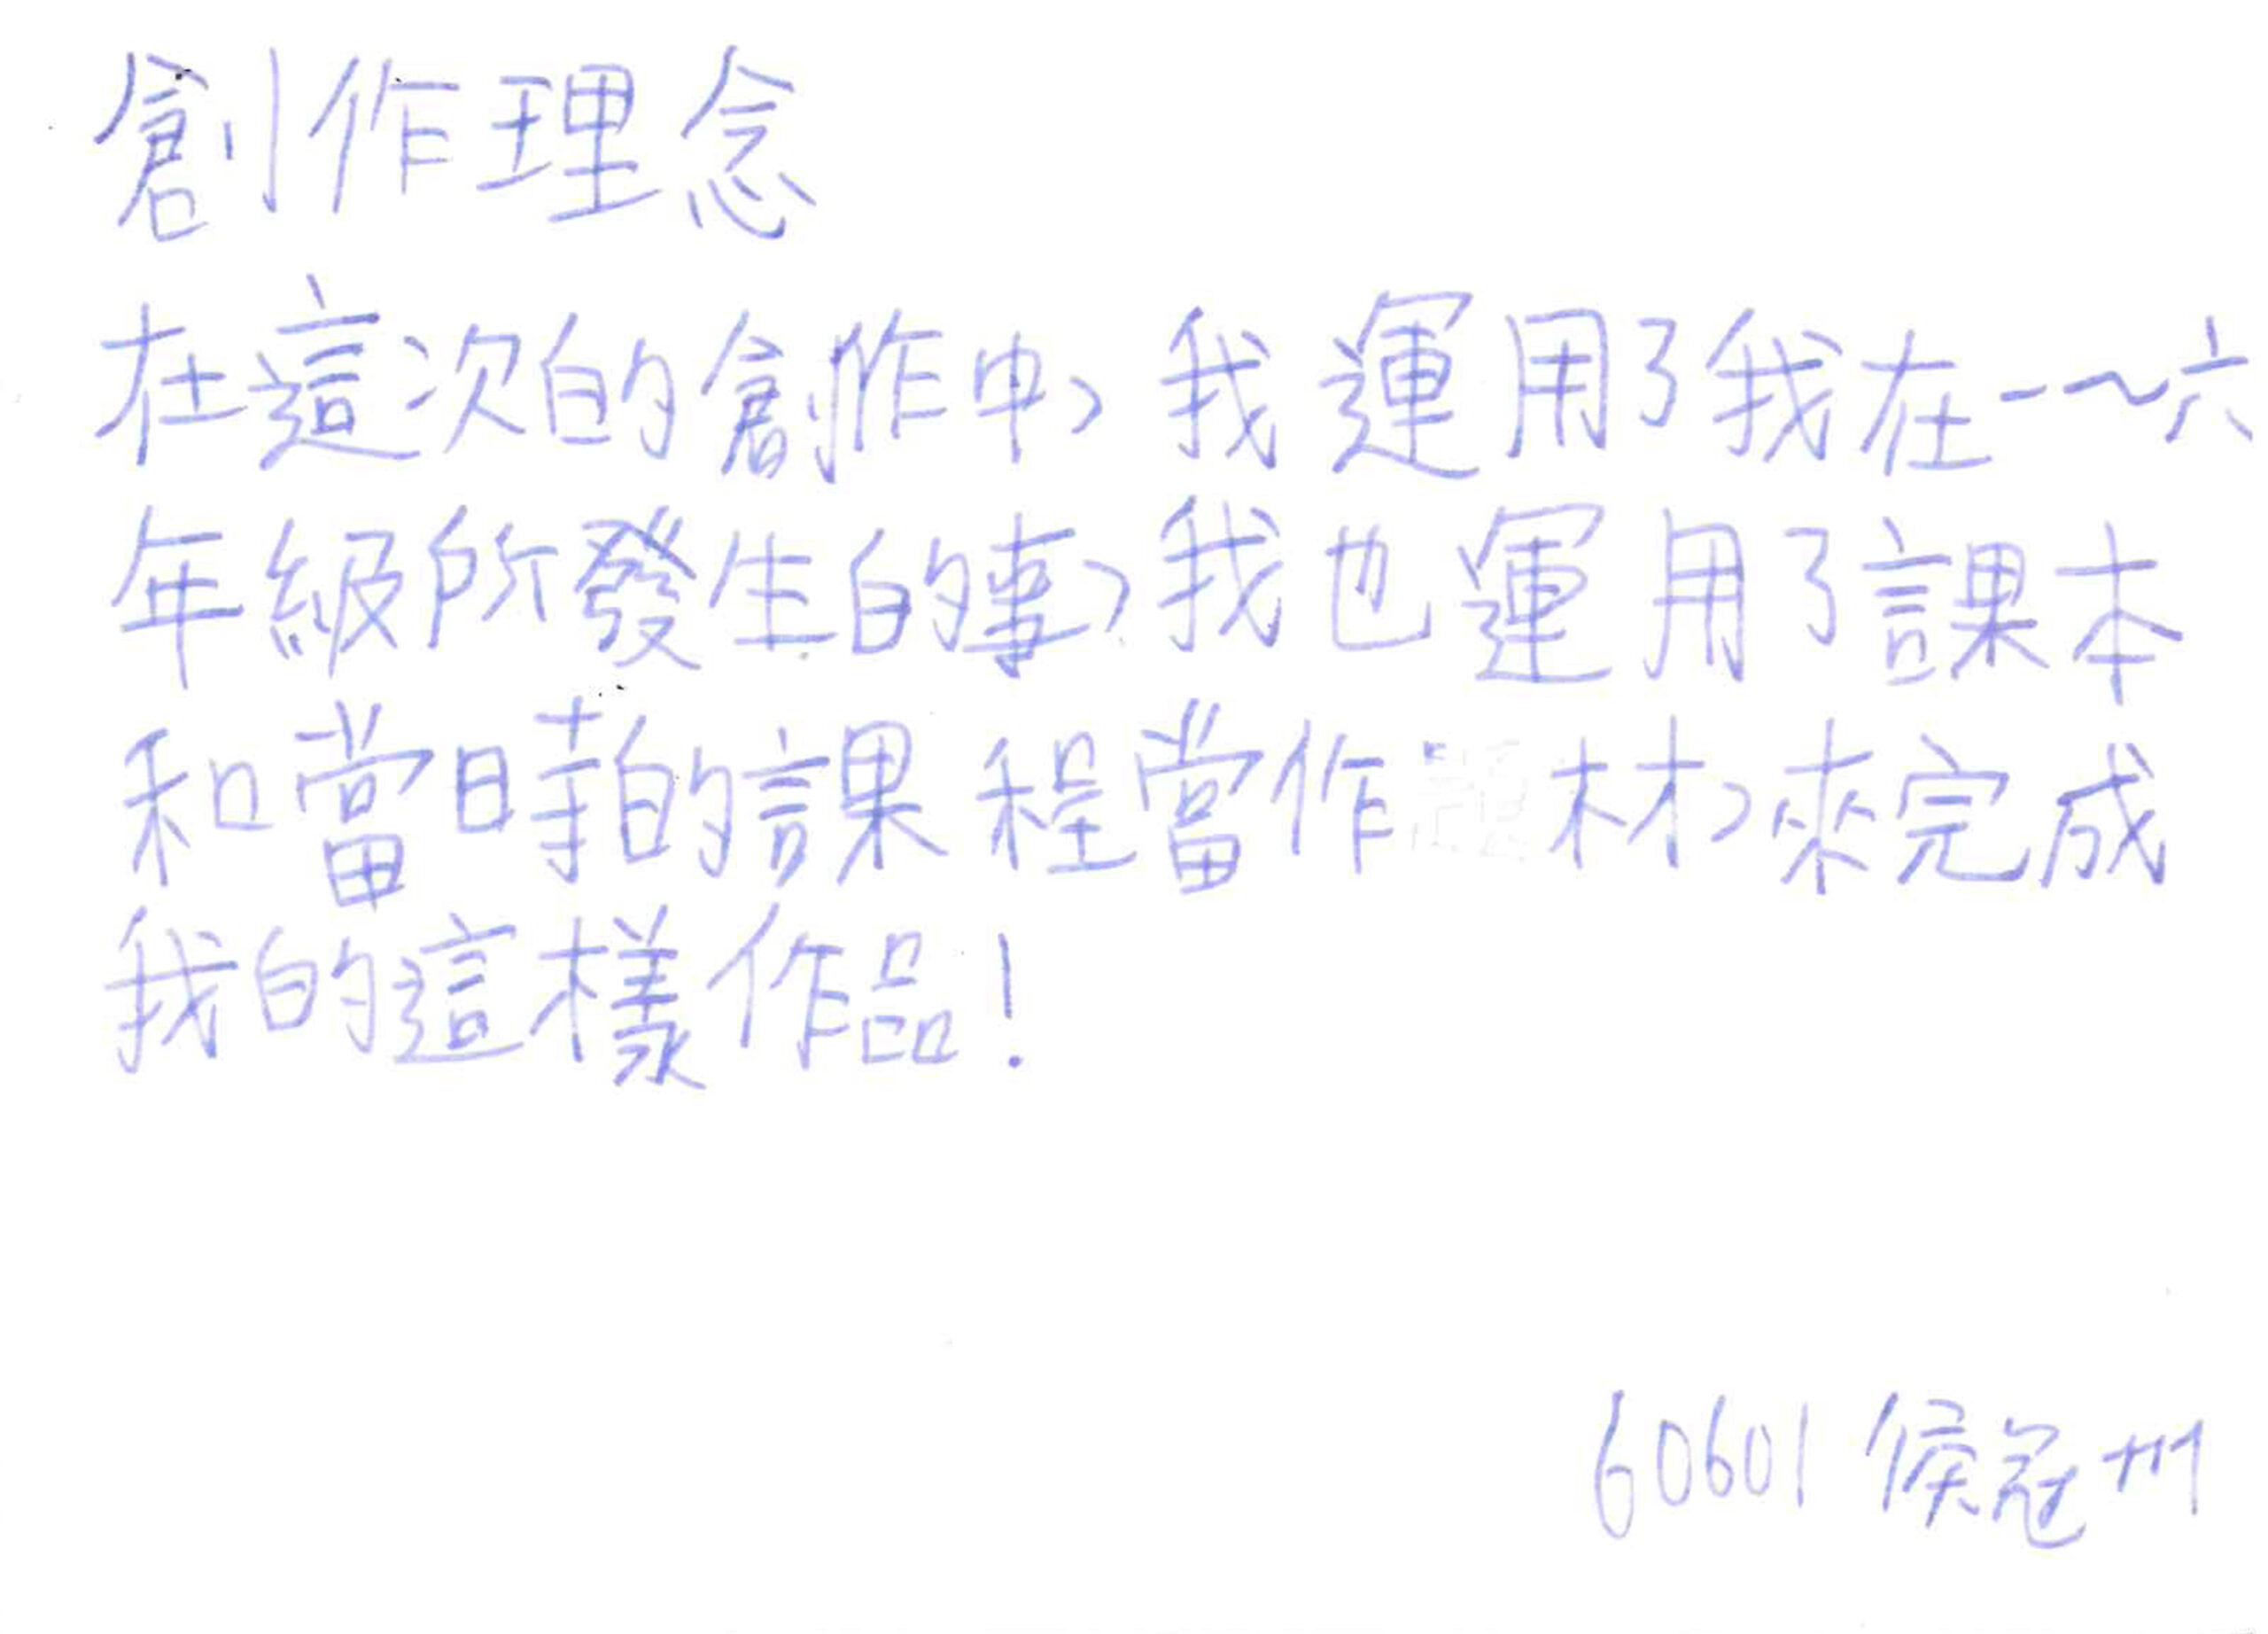 創作理念
在這次的創作中，我運用了我在一~六
年級所發生的事，我也運用了課本
和當時的課程當作 材，來完成
我的這樣作品！
60601 侯冠州